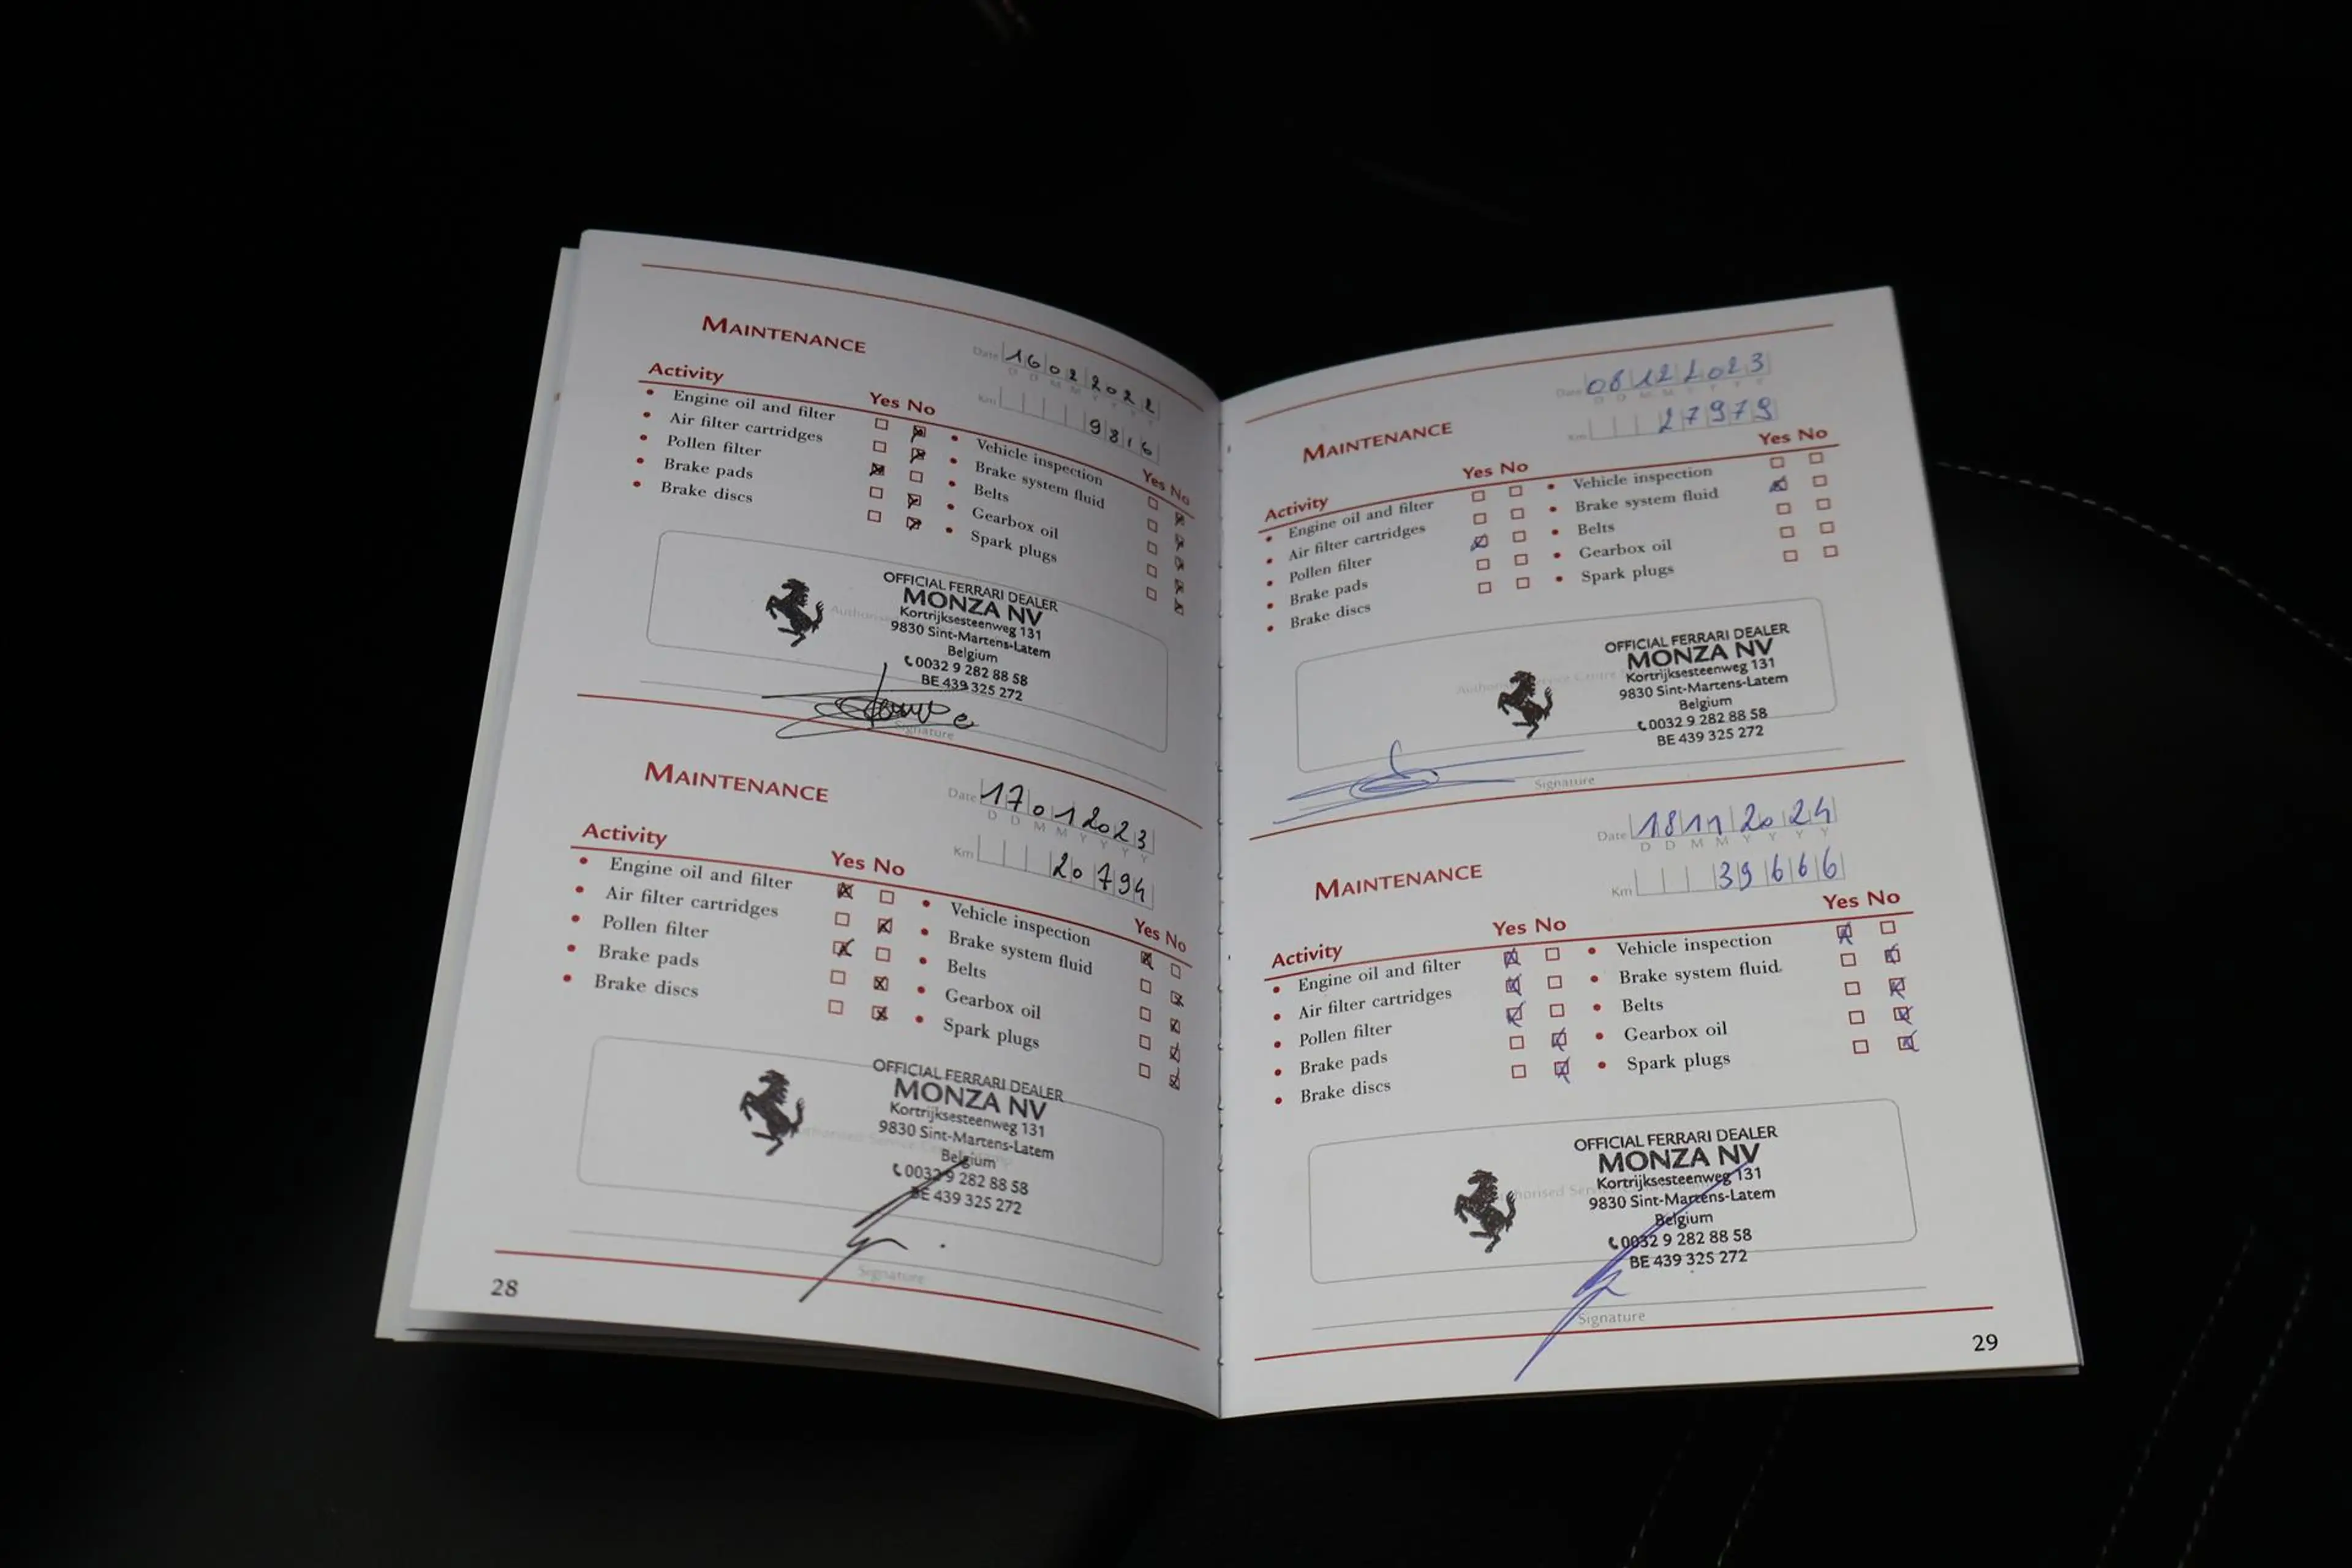 MAINTENANCE
Date 16022022
D D M M Y Y Y Y
Km 9816
Activity Yes No Yes No
• Engine oil and filter • Vehicle inspection
• Air filter cartridges • Brake system fluid
• Pollen filter • Belts
• Brake pads • Gearbox oil
• Brake discs • Spark plugs
OFFICIAL FERRARI DEALER
MONZA NV
Kortrijksesteenweg 131
9830 Sint-Martens-Latem
Belgium
0032 9 282 88 58
BE 439 325 272
Signature
MAINTENANCE
Date 17012023
D D M M Y Y Y Y
Km 20794
Activity Yes No Yes No
• Engine oil and filter • Vehicle inspection
• Air filter cartridges • Brake system fluid
• Pollen filter • Belts
• Brake pads • Gearbox oil
• Brake discs • Spark plugs
OFFICIAL FERRARI DEALER
MONZA NV
Kortrijksesteenweg 131
9830 Sint-Martens-Latem
Belgium
0032 9 282 88 58
BE 439 325 272
Signature
28
MAINTENANCE
Date 08122023
D D M M Y Y Y Y
Km 27979
Activity Yes No Yes No
• Engine oil and filter • Vehicle inspection
• Air filter cartridges • Brake system fluid
• Pollen filter • Belts
• Brake pads • Gearbox oil
• Brake discs • Spark plugs
Authorised Service Centre
OFFICIAL FERRARI DEALER
MONZA NV
Kortrijksesteenweg 131
9830 Sint-Martens-Latem
Belgium
0032 9 282 88 58
BE 439 325 272
Signature
MAINTENANCE
Date 18112024
D D M M Y Y Y Y
Km 39666
Activity Yes No Yes No
• Engine oil and filter • Vehicle inspection
• Air filter cartridges • Brake system fluid
• Pollen filter • Belts
• Brake pads • Gearbox oil
• Brake discs • Spark plugs
OFFICIAL FERRARI DEALER
MONZA NV
Kortrijksesteenweg 131
9830 Sint-Martens-Latem
Belgium
0032 9 282 88 58
BE 439 325 272
Signature
29